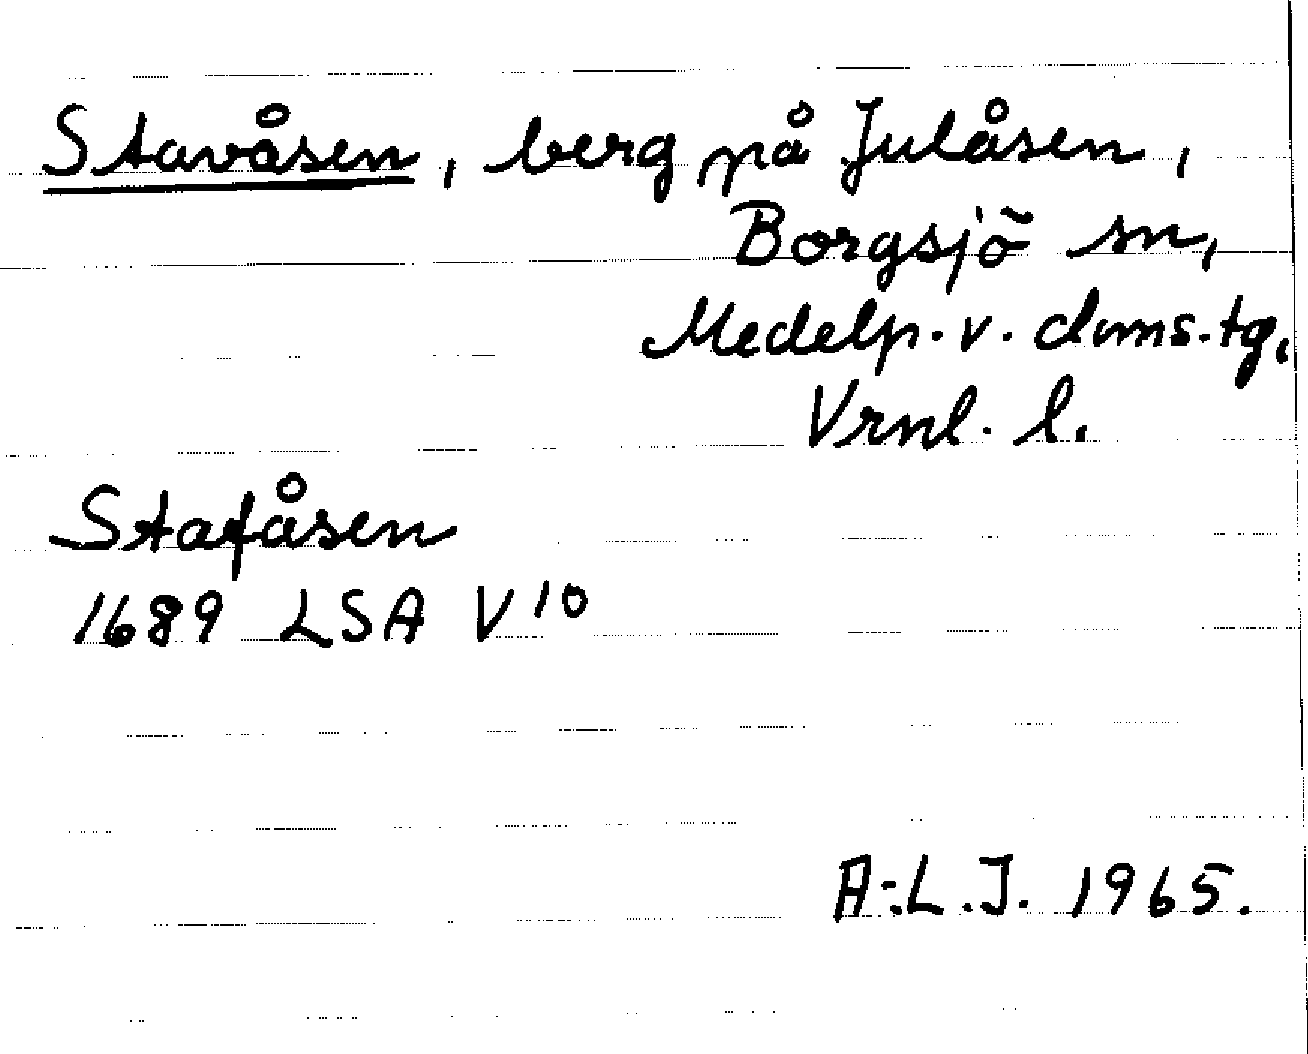 Stavåsen, berg på Julåsen,
Borgsjö sn,
Medelp. v. doms. tg,
Vrnl. l.
Stafåsen
1689 LSA V 10
A:L.J. 1965.